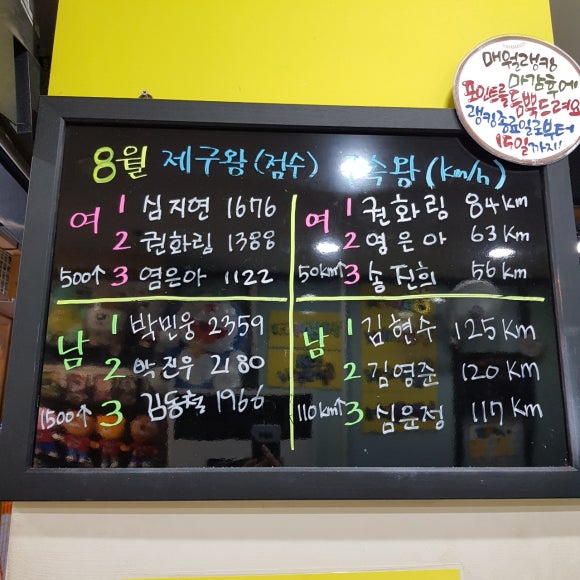 매월랭킹
마감후에
포인트를 듬뿍드려요
랭킹종료일로부터
15일까지!
8월 제구왕 (점수)
여 1 심지현 1676
2 권화림 1388
500↑ 3 염은아 1122
남 1 박민웅 2359
2 박진우 2180
1500↑ 3 김동철 1966
속왕 (km/h)
여 1 권화림 84km
2 염은아 63km
50km↑ 3 송진희 56km
남 1 김현수 125km
2 김영준 120km
110km↑ 3 심윤정 117km